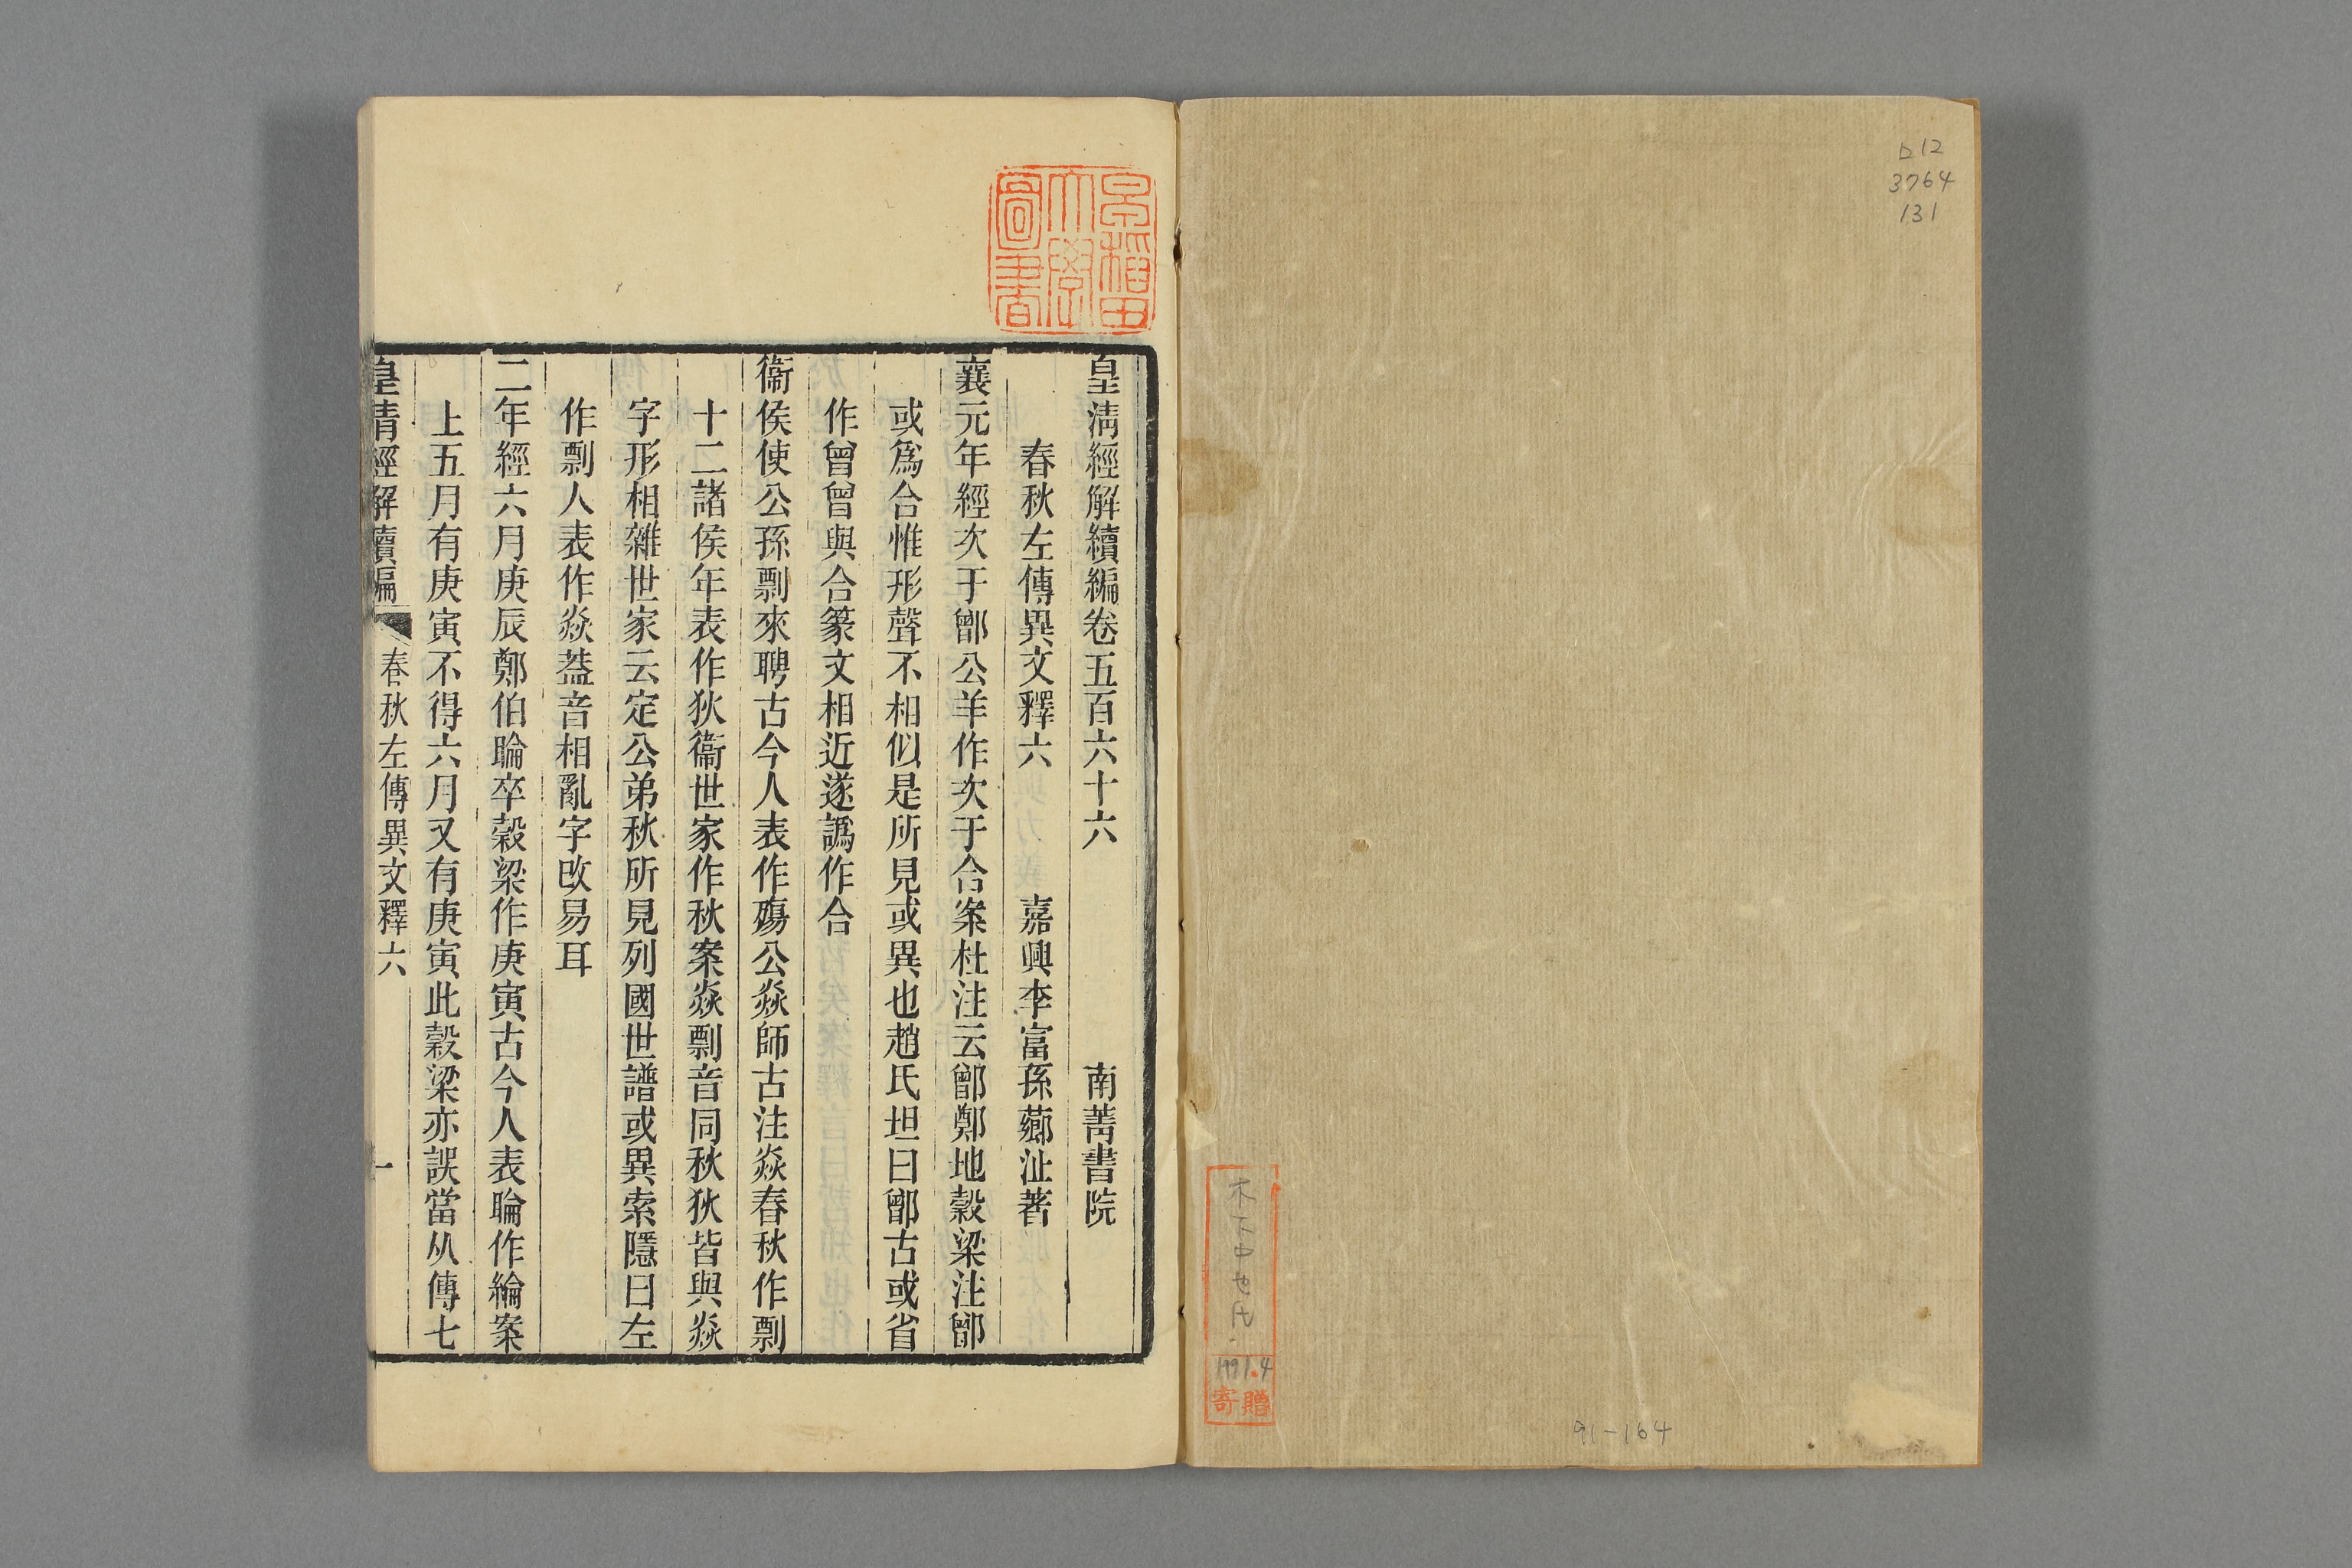 ロ12
3764
131
木下中也氏
1991.4
寄贈
91-164
早稲田
大學
圖書
皇清經解續編卷五百六十六 南菁書院
春秋左傳異文釋六 嘉興李富孫薌沚著
襄元年經次于鄫公羊作次于合案杜注云鄫鄭地穀梁注鄫
或爲合惟形聲不相似是所見或異也趙氏坦曰鄫古或省
作曾曾與合篆文相近遂譌作合
衞侯使公孫剽來聘古今人表作殤公焱師古注焱春秋作剽
十二諸侯年表作狄衞世家作秋案焱剽音同秋狄皆與焱
字形相雜世家云定公弟秋所見列國世譜或異索隱曰左
作剽人表作焱葢音相亂字改易耳
二年經六月庚辰鄭伯睔卒穀梁作庚寅古今人表睔作綸案
上五月有庚寅不得六月又有庚寅此穀梁亦誤當从傳七
皇清經解續編 春秋左傳異文釋六 一